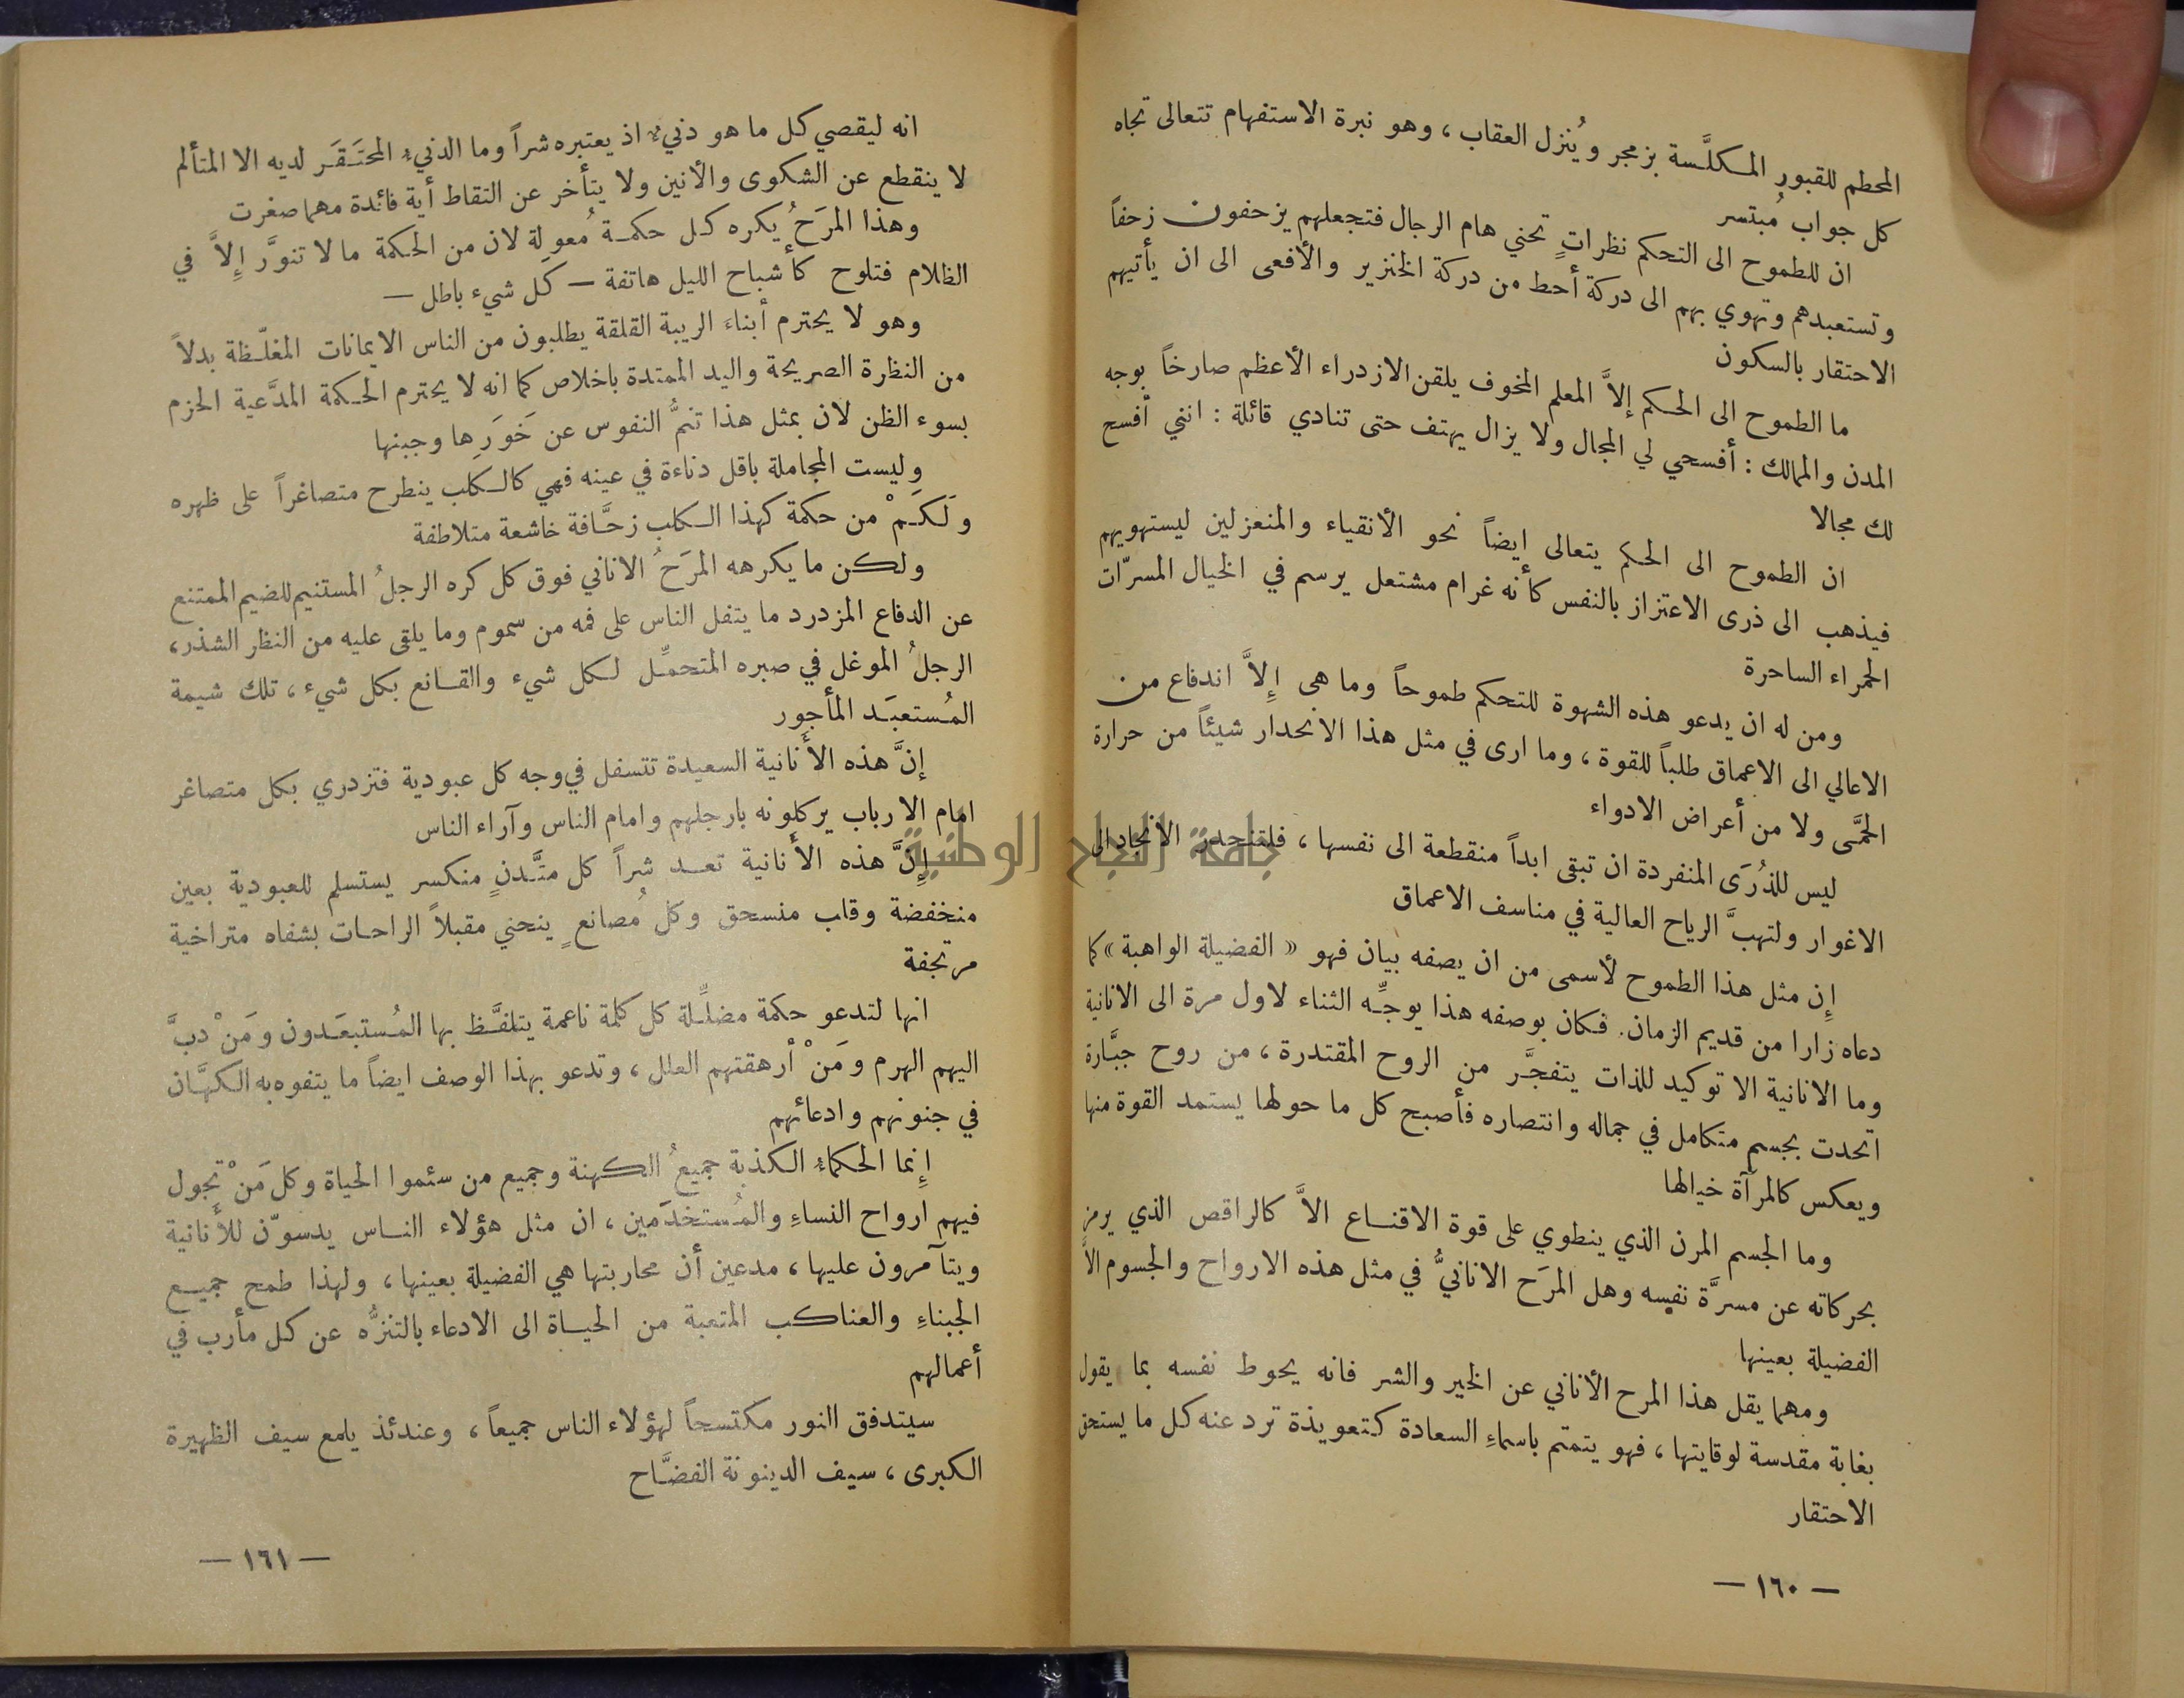 المحطم للقبور المكلَّسة يزمجر ويُنزل العقاب، وهو نبرة الاستفهام تتعالى تجاه
كل جواب مُبتسر
ان للطموح الى التحكم نظراتٍ تحني هام الرجال فتجعلهم يزحفون زحفاً
وتستعبدهم وتهوي بهم الى دركة أحط من دركة الخنزير والأفعى الى ان يأتيهم
الاحتقار بالسكون
ما الطموح الى الحكم إلاَّ المعلم المخوف يلقن الازدراء الأعظم صارخاً بوجه
المدن والممالك : أفسحي لي المجال ولا يزال يهتف حتى تنادي قائلة : انني أفسح
لك مجالا
ان الطموح الى الحكم يتعالى ايضاً نحو الأنقياء والمنعزلين ليستهويهم
فيذهب الى ذرى الاعتزاز بالنفس كأنه غرام مشتعل يرسم في الخيال المسرّات
الحمراء الساحرة
ومن له ان يدعو هذه الشهوة للتحكم طموحاً وما هي إِلاَّ اندفاع من
الاعالي الى الاعماق طلباً للقوة، وما ارى في مثل هذا الانحدار شيئاً من حرارة
الحمَّى ولا من أعراض الادواء
ليس للذُرَى المنفردة ان تبقى ابداً منقطعة الى نفسها، فلتنحدر الأنجاد الى
الاغوار ولتهبَّ الرياح العالية في مناسف الاعماق
إِن مثل هذا الطموح لأسمى من ان يصفه بيان فهو « الفضيلة الواهبة » كما
دعاه زارا من قديم الزمان. فكان بوصفه هذا يوجِّه الثناء لاول مرة الى الانانية
وما الانانية الا توكيد للذات يتفجَّر من الروح المقتدرة، من روح جبَّارة
اتحدت بجسم متكامل في جماله وانتصاره فأصبح كل ما حولها يستمد القوة منها
ويعكس كالمرآة خيالها
وما الجسم المرن الذي ينطوي على قوة الاقناع الاَّ كالراقص الذي يرمز
بحركاته عن مسرَّة نفسه وهل المرَح الانانيُّ في مثل هذه الارواح والجسوم الاَّ
الفضيلة بعينها
ومهما يقل هذا المرح الأناني عن الخير والشر فانه يحوط نفسه بما يقول
بغابة مقدسة لوقايتها، فهو يتمتم باسماءِ السعادة كتعويذة ترد عنه كل ما يستحق
الاحتقار
— ١٦٠ —
انه ليقصي كل ما هو دنيءٌ اذ يعتبره شراً وما الدنيءُ المحتَقَر لديه الا المتألم
لا ينقطع عن الشكوى والأنين ولا يتأخر عن التقاط أية فائدة مهما صغرت
وهذا المرَحُ يكره كل حكمة مُعولة لان من الحكمة ما لا تنوَّر إِلاَّ في
الظلام فتلوح كأشباح الليل هاتفة — كل شيء باطل —
وهو لا يحترم أبناءَ الريبة القلقة يطلبون من الناس الايمانات المغلّظة بدلاً
من النظرة الصريحة واليد الممتدة باخلاص كما انه لا يحترم الحكمة المدَّعية الحزم
بسوء الظن لأن بمثل هذا تنمُّ النفوس عن خَوَرِها وجبنها
وليست المجاملة باقل دناءة في عينه فهي كالكلب ينطرح متصاغراً على ظهره
ولَكَمْ من حكمة كهذا الكلب زحَّافة خاشعة متلاطفة
ولكن ما يكرهه المرَحُ الاناني فوق كل كره الرجلُ المستنيم للضيم الممتنع
عن الدفاع المزدرد ما يتفل الناس على فمه من سموم وما يلقى عليه من النظر الشذر،
الرجلُ الموغل في صبره المتحمِّل لكل شيء والقانع بكل شيء، تلك شيمة
المُستعبَد المأجور
إنَّ هذه الأَنانية السعيدة تتسفل في وجه كل عبودية فتزدري بكل متصاغر
امام الارباب يركلونه بارجلهم وامام الناس وآراء الناس
إِنَّ هذه الأَنانية تعد شراً كل متَّدنٍ منكسر يستسلم للعبودية بعين
منخفضة وقلب منسحق وكل مُصانعٍ ينحني مقبلاً الراحات بشفاه متراخية
مرتجفة
انها لتدعو حكمة مضلِّلة كل كلمة ناعمة يتلفَّظ بها المُستبعَدون ومَنْ دبَّ
اليهم الهرم ومَنْ أرهقتهم العلل، وتدعو بهذا الوصف ايضاً ما يتفوه به الكهَّان
في جنونهم وادعائهم
إِنما الحكماءُ الكذبة جميعُ الكهنة وجميع من سئموا الحياة وكل مَنْ تجول
فيهم ارواح النساءِ والمُستخدَمين، ان مثل هؤلاء الناس يدسوّن للأَنانية
ويتآمرون عليها، مدعين أن محاربتها هي الفضيلة بعينها، ولهذا طمح جميع
الجبناءِ والعناكب المتعبة من الحياة الى الادعاء بالتنزُّه عن كل مأرب في
أعمالهم
سيتدفق النور مكتسحاً لهؤلاء الناس جميعاً، وعندئذ يلمع سيف الظهيرة
الكبرى، سيف الدينونة الفضَّاح
— ١٦١ —
جامعة النجاح الوطنية